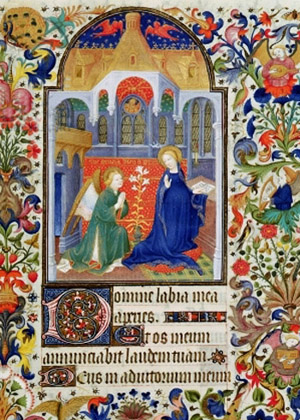 Domine labia mea
aperies. Et os meum
annunciabit laudem tuam.
Deus in adiutorium meum